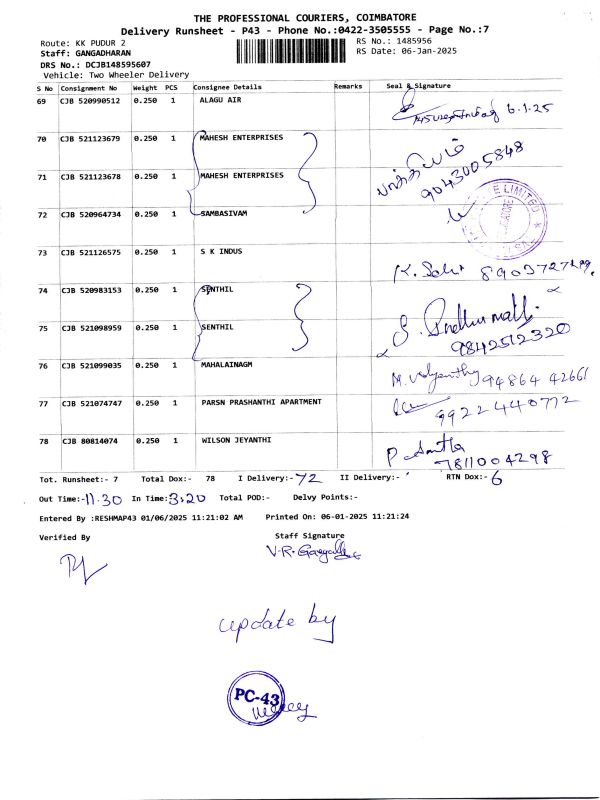 THE PROFESSIONAL COURIERS, COIMBATORE
Delivery Runsheet - P43 - Phone No.:0422-3505555 - Page No.:7
Route: KK PUDUR 2
RS No.: 1485956
Staff: GANGADHARAN
RS Date: 06-Jan-2025
DRS No.: DCJB148595607
Vehicle: Two Wheeler Delivery
S No Consignment No Weight PCS Consignee Details Remarks Seal & Signature
69 CJB 520990512 0.250 1 ALAGU AIR 6.1.25
70 CJB 521123679 0.250 1 MAHESH ENTERPRISES
9043005848
71 CJB 521123678 0.250 1 MAHESH ENTERPRISES
72 CJB 520964734 0.250 1 SAMBASIVAM
LIMITED
73 CJB 521126575 0.250 1 S K INDUS
74 CJB 520983153 0.250 1 SENTHIL
75 CJB 521098959 0.250 1 SENTHIL
9842512320
76 CJB 521099035 0.250 1 MAHALAINAGM 94864 42661
77 CJB 521074747 0.250 1 PARSN PRASHANTHI APARTMENT 9922440772
78 CJB 80814074 0.250 1 WILSON JEYANTHI
7811004298
Tot. Runsheet:- 7 Total Dox:- 78 I Delivery:- 72 II Delivery:- RTN Dox:- 6
Out Time:- 11.30 In Time:- 3.20 Total POD:- Delvy Points:-
Entered By :RESHMAP43 01/06/2025 11:21:02 AM Printed On: 06-01-2025 11:21:24
Verified By Staff Signature
update by
PC-43